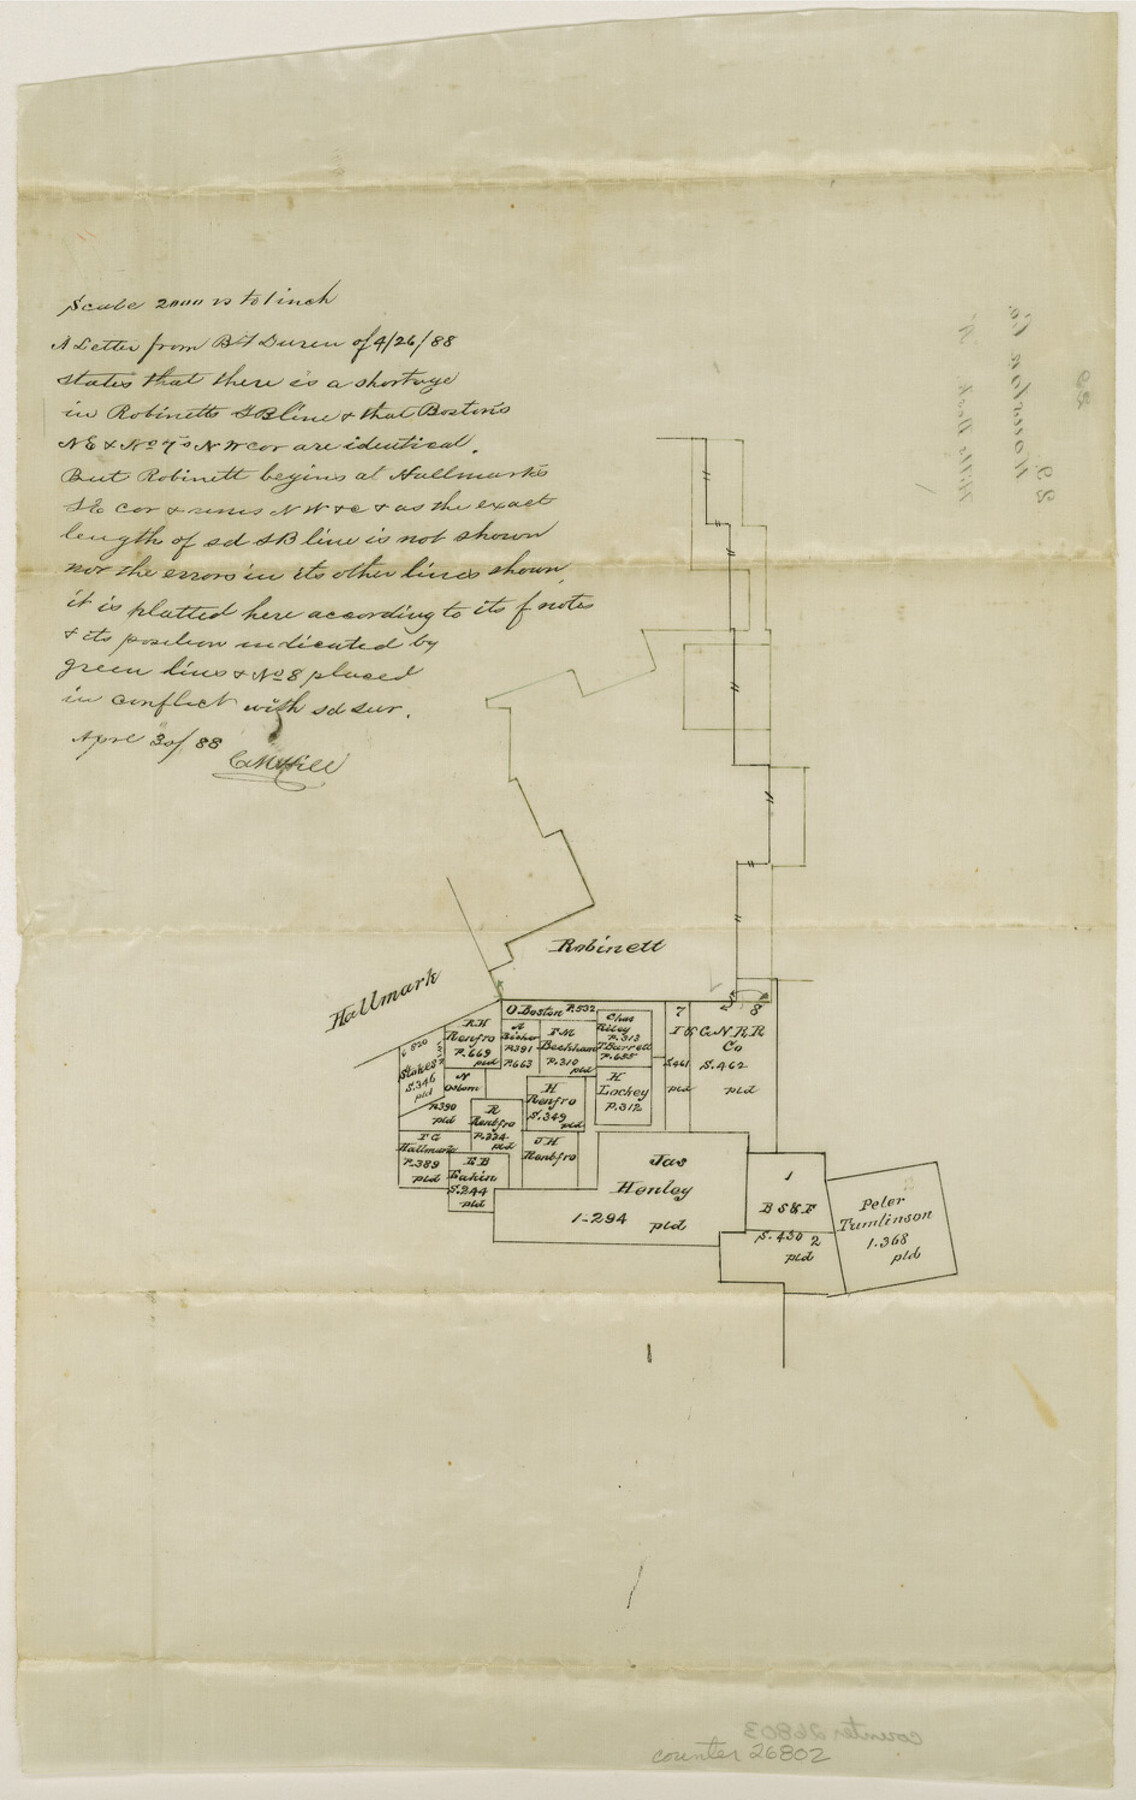 Scale 2000 vs to 1 inch
A Letter from Duren of 4/26/88
states that there is a shortage
in Robinetts SB line & that Boston's
NE & No 7's NW cor are identical.
But Robinett begins at Hallmark's
SE cor & runs N W &c & as the exact
length of sd SB line is not shown
nor the errors in its other lines shown,
it is platted here according to its f notes
& its position indicated by
green lines & No 8 placed
in conflict with sd sur.
Apr 30/88
Robinett
Hallmark
O. Boston P.532
R H
Renfro
P.669
pld
A
P.391
P.663
F M
Beckham
P.310
pld
Chas
Riley
P.313
J Barrett
P.655
7
8
I & G N R R
Co
S.461
pld
S.462
pld
820
Stokes
S.346
pld
N
Osborn
P.390
pld
H
Renfro
S.349
pld
H
Lockey
P.312
R
Rentfro
P.224
pld
Hallmark
P.389
pld
E B
Eakin
S.244
pld
J H
Rentfro
Jas
Henley
1-294
pld
1
B S & F
S.450 2
pld
Peter
Tumlinson
1.368
pld
Houston Co
counter 26803
counter 26802